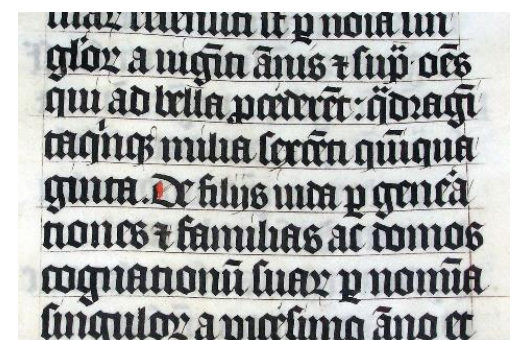 suar recensiti st̄ p̱ noīa sin
gl'oꝝ a uigīti ānis ⁊ sup̄· oēs
qui ad bella ꝓcederēt: q̄dragī
taq'nqꝫ milia sexcēti quīqua
ginta. De filijs iuda p̱ gene'a
tiones ⁊ familias ac domos
cognationū suaꝝ p̱ nomīa
singuloꝝ a uicesimo āno et